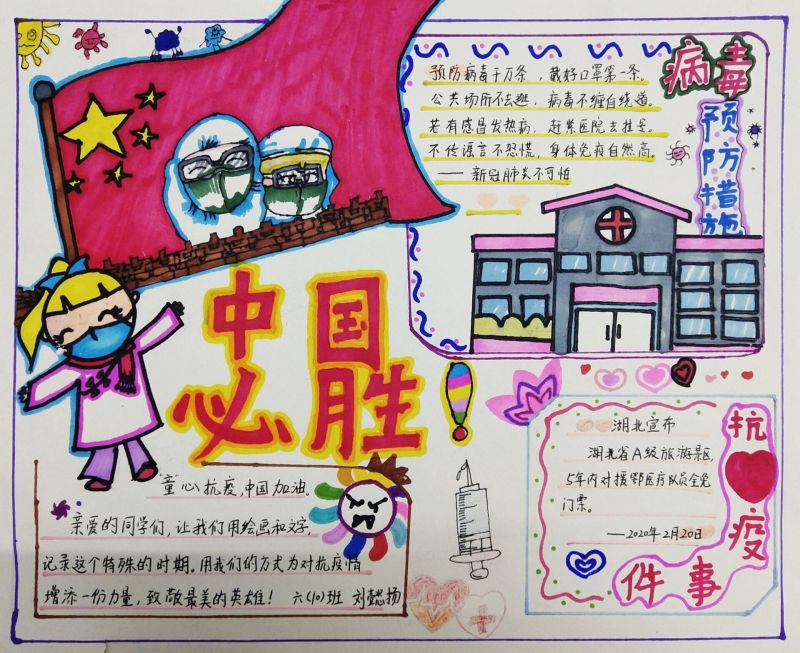 预防病毒千万条，戴好口罩第一条。
公共场所不去逛，病毒不缠自绕道。
若有感冒发热病，赶紧医院去挂号。
不传谣言不恐慌，身体免疫自然高。
——新冠肺炎不可怕
病毒
预防措施
中国
必胜
童心抗疫,中国加油.
亲爱的同学们，让我们用绘画和文字，
记录这个特殊的时期。用我们的方式为对抗疫情
增添一份力量，致敬最美的英雄！ 六(10)班 刘懿扬
湖北宣布
湖北省A级旅游景区,
5年内对援鄂医疗队员全免
门票。
——2020年2月20日
抗
疫
事
件